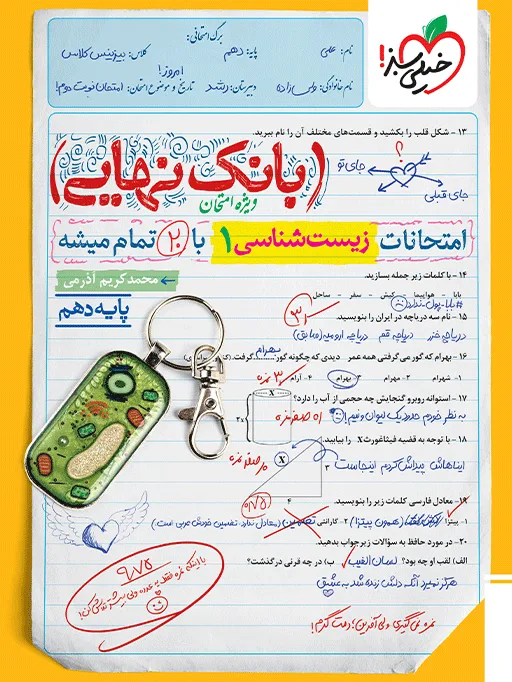 برگ امتحانی:
نام: علی
پایه: دهم
کلاس: بیزینس کلاس
نام خانوادگی: ولی‌زاده
دبیرستان: رشد
تاریخ و موضوع امتحان: امروز! امتحان نوبت دوم!
خیلی سبز!
۱۳ - شکل قلب را بکشید و قسمت‌های مختلف آن را نام ببرید.
؟
جای تو
جای قبلی
(بانک نهایی)
ویژه امتحان
امتحانات زیست‌شناسی ۱ با ۲۰ تمام میشه
محمدکریم آذرمی
پایه دهم
۱۴ - با کلمات زیر جمله بسازید.
بابا - هواپیما - کیش - سفر - ساحل
#بابا-پول-ندارد
۱۵ - نام سه دریاچه در ایران را بنویسید.
دریاچه خزر دریاچه قم دریاچه ارومیه (سابق)
۱۶ - بهرام که گور می‌گرفتی همه عمر دیدی که چگونه گور ........ گرفت.
بهرام
۱- شهرام ۲- مهرام ۳- بهرام ۴- آرام
۳ نمره
۱۷ - استوانه روبرو گنجایش چه حجمی از آب را دارد؟
به نظر خودم حدود یک لیوان و نیم!
X
۲x
۱۸ - با توجه به قضیه فیثاغورث X را بیابید.
ایناهاش پیداش کردم اینجاست
X
۳
۴
۱۹ - معادل فارسی کلمات زیر را بنویسید.
۱- پیتزا (همون پیتزا) ۲- گارانتی تضمین (معادل ندارد. تضمین خودش عربی است)
۲۰ - در مورد حافظ به سؤالات زیر جواب بدهید.
الف) لقب او چه بود؟ لسان الغیب ب) در چه قرنی درگذشت؟
هرگز نمیرد آنکه دلش زنده شد به عشق
۹/۷۵
نمره نمی‌گیری ولی آفرین! دمت گرم!